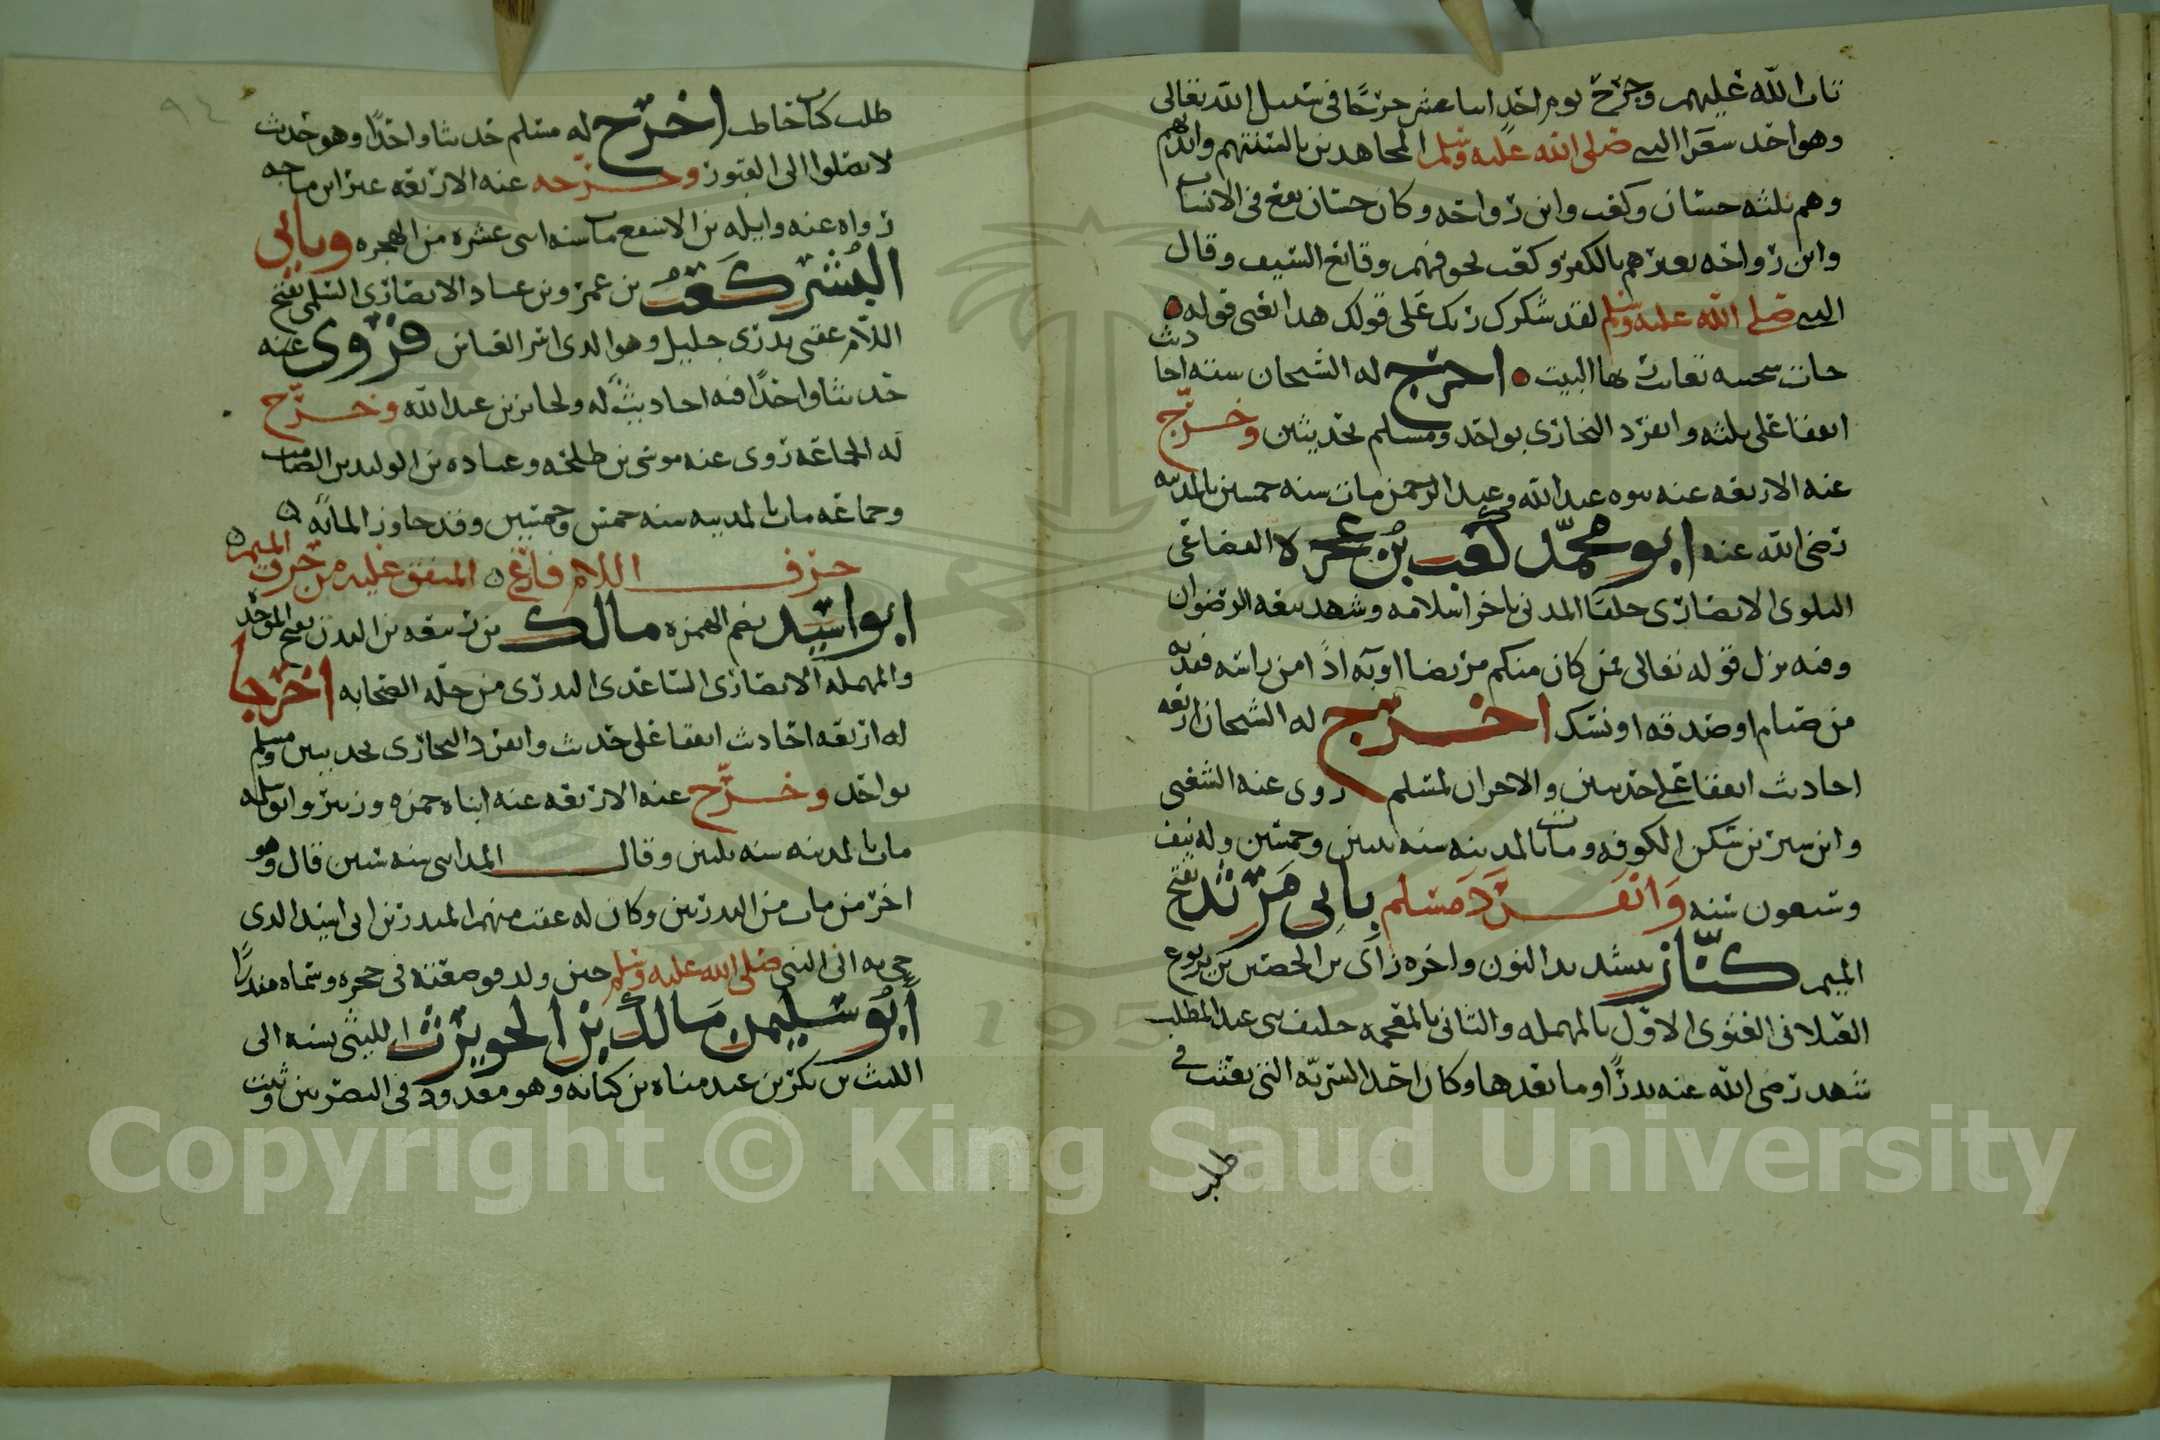 تاب الله عليهم وجرح يوم احد احدا عشر جرحا في سبيل الله تعالى
وهو احد شعرا النبي صلى الله عليه وسلم المجاهدين بالسنتهم وايديهم
وهم ثلثه حسان وكعب وابن رواحه وكان حسان يقع في الانساب
وابن رواحه يعيرهم بالكفر وكعب يخوفهم وقائع السيف وقال
النبي صلى الله عليه وسلم لقد شكرك ربك على قولك هذا يعني قوله
جات سخينه تغالب ربها البيت اخرج له الشيخان سته احاديث
اتفقا على ثلثه وانفرد البخاري بواحد ومسلم بحديثين وخرج
عنه الاربعه عنه بنوه عبد الله وعبد الرحمن مات سنه خمسين بالمدينه
رضي الله عنه ابو محمد كعب بن عجره القضاعي
البلوي الانصاري حلفا المدني تاخر اسلامه وشهد بيعه الرضوان
وفيه نزل قوله تعالى فمن كان منكم مريضا او به اذا من راسه ففديه
من صيام او صدقه او نسك اخرج له الشيخان اربعه
احاديث اتفقا على حديثين والاخران لمسلم روى عنه الشعبي
وابن سيرين سكن الكوفه ومات بالمدينه سنه ثنتين وخمسين وله نيف
وسبعون سنه وانفرد مسلم بابي مرثد بفتح
الميم كناز بتشديد النون واخره زاي بن الحصين بن يربوع
العيلاني الغنوي الاول بالمهمله والثاني بالمعجمه حليف بني عبد المطلب
شهد رضي الله عنه بدرا وما بعدها وكان احد السريه التي بعثت في
طلب
٩٤
طلب كتاب حاطب اخرج له مسلم حديثا واحدا وهو حديث
لا تصلوا الى القبور وخرجه عنه الاربعه غير ابن ماجه
رواه عنه واثله بن الاسقع مات سنه اثنتي عشره من الهجره وبابي
اليسر كعب بن عمرو بن عباد الانصاري السلمي بفتح
اللام عقبي بدري جليل وهو الذي اسر العباس فروى عنه
حديثا واحدا فيه احاديث له ولجابر بن عبد الله وخرج
له الجماعه روى عنه موسى بن طلحه وعباده بن الوليد بن الصامت
وجماعه مات بالمدينه سنه خمس وخمسين وقد جاوز المائه
حرف اللام فارغ المتفق عليه من حرف الميم
ابو اسيد بضم الهمزه مالك بن ربيعه بن البدن بفتح الموحده
والمهمله الانصاري الساعدي البدري من جله الصحابه اخرجا
له اربعه احاديث اتفقا على حديث وانفرد البخاري بحديثين ومسلم
بواحد وخرج عنه الاربعه عنه ابناه حمزه وزبير وابو سلمه
مات بالمدينه سنه ثلثين وقال المدايني سنه ستين قال وهو
اخر من مات من البدريين وكان له عقب منهم المنذر بن ابي اسيد الذي
جي به الى النبي صلى الله عليه وسلم حين ولد فوضعته في حجره وسماه منذرا
ابو سليمن مالك بن الحويرث الليثي نسبه الى
الليث بن بكر بن عبد مناه بن كنانه وهو معدود في البصريين ثبت